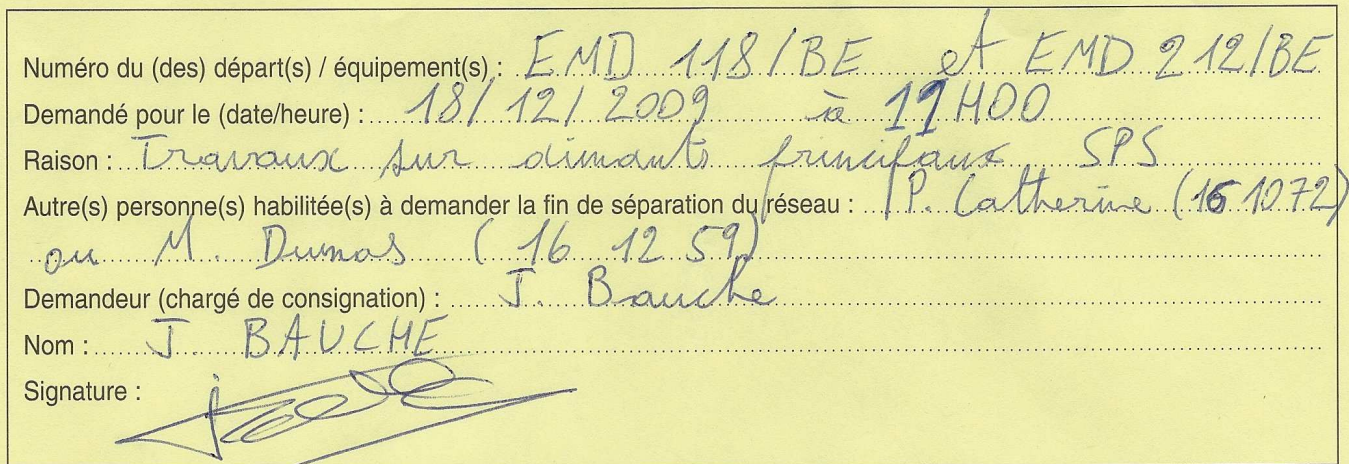 Numéro du (des) départ(s) / équipement(s) : EMD 118/BE et EMD 212/BE
Demandé pour le (date/heure) : 18/12/2009 à 11H00
Raison : Travaux sur aimants principaux SPS
Autre(s) personne(s) habilitée(s) à demander la fin de séparation du réseau : P. Catherine (16 1072)
ou M. Dumas (16 12 59)
Demandeur (chargé de consignation) : J. Bauche
Nom : J. BAUCHE
Signature :